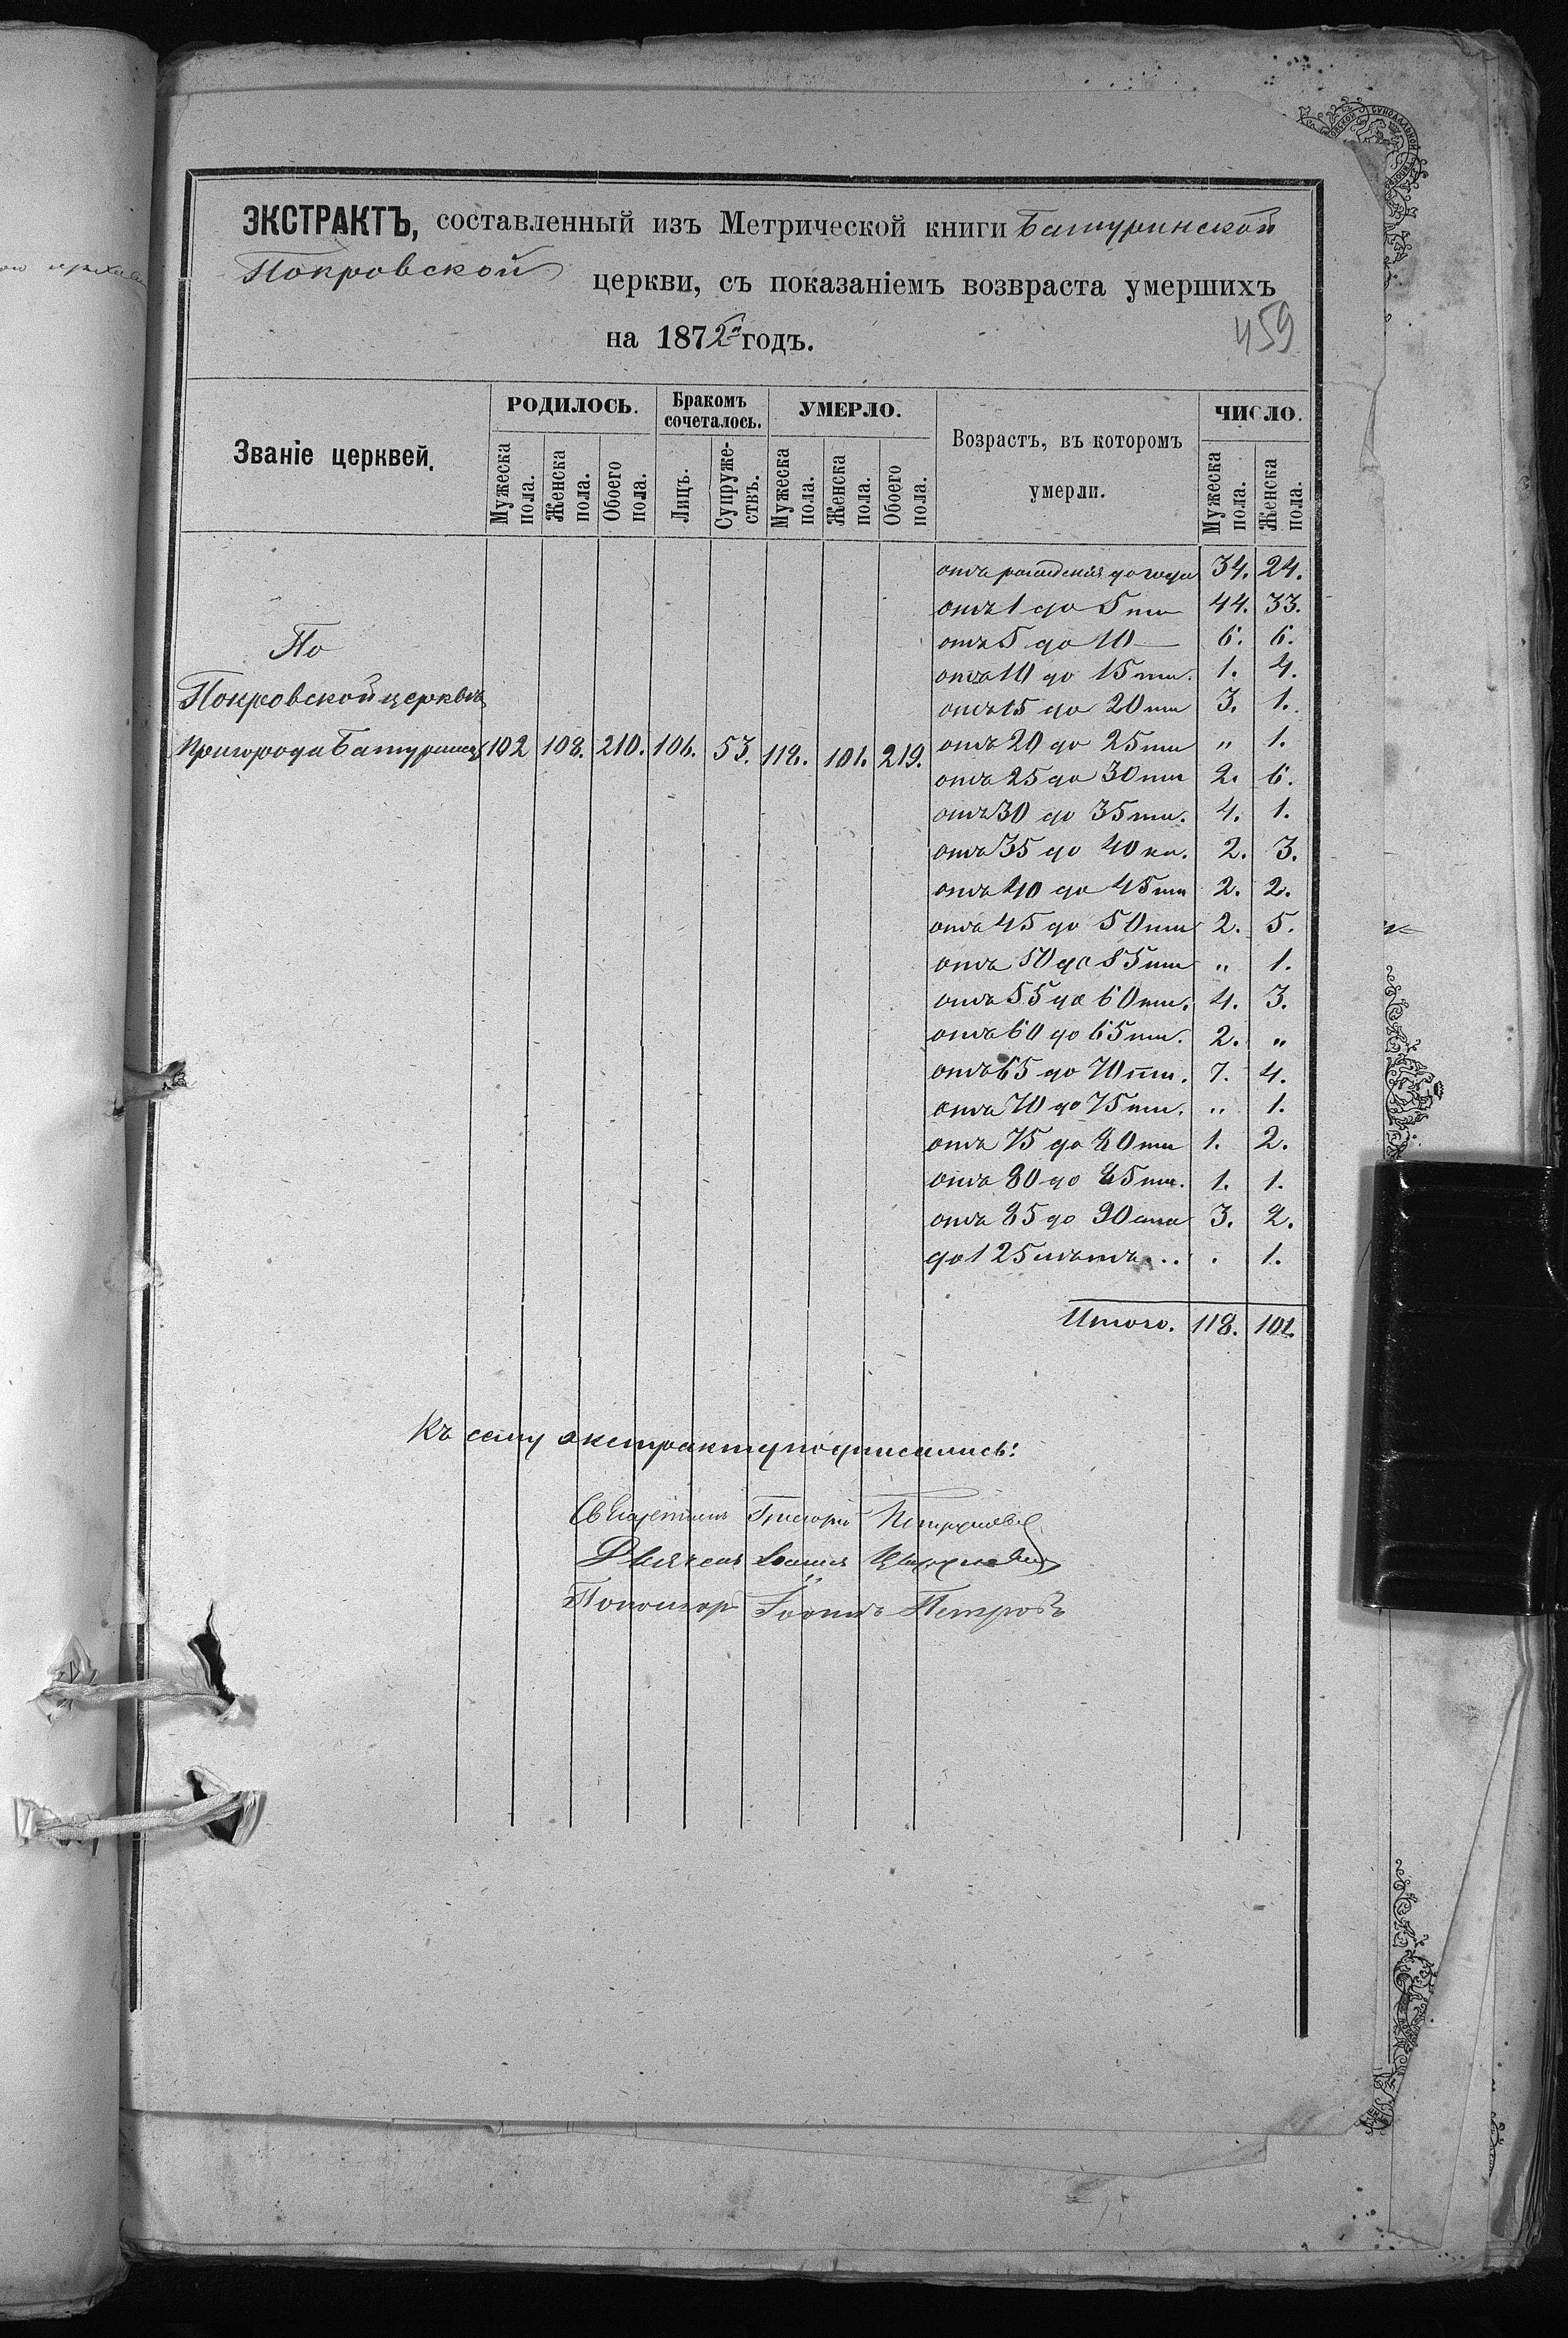 ЭКСТРАКТЪ, составленный изъ Метрической книги Батуринской
Покровской церкви, съ показаніемъ возвраста умершихъ
459
на 1872й годъ.
Званіе церквей.
РОДИЛОСЬ.
Мужеска пола.
Женска пола.
Обоего пола.
Бракомъ сочеталось.
Лицъ.
Супружествъ.
УМЕРЛО.
Мужеска пола.
Женска пола.
Обоего пола.
Возрастъ, въ которомъ
умерли.
ЧИСЛО.
Мужеска пола.
Женска пола.
отъ рожденія до года 34. 24.
отъ 1 до 5ти 44. 33.
По
отъ 5 до 10 — 6. 6.
отъ 10 до 15ти. 1. 4.
Покровской церквѣ
отъ 15 до 20ти 3. 1.
пригорода Батурина 102 108. 210. 106. 53. 118. 101. 219.
отъ 20 до 25ти „ 1.
отъ 25 до 30ти 2. 6.
отъ 30 до 35ти. 4. 1.
отъ 35 до 40ка. 2. 3.
отъ 40 до 45ти 2. 2.
отъ 45 до 50ти 2. 5.
отъ 50 до 55ти „ 1.
отъ 55 до 60ти. 4. 3.
отъ 60 до 65ти. 2. „
отъ 65 до 70ти. 7. 4.
отъ 70 до 75ти. „ 1.
отъ 75 до 80ти 1. 2.
отъ 80 до 85ти. 1. 1.
отъ 85 до 90ста 3. 2.
до 125 лѣтъ ... . 1.
Итого. 118. 101.
Къ сему экстракту подписались:
Священникъ Григорій
Дьячекъ
Пономарь Іоаннъ Петровъ